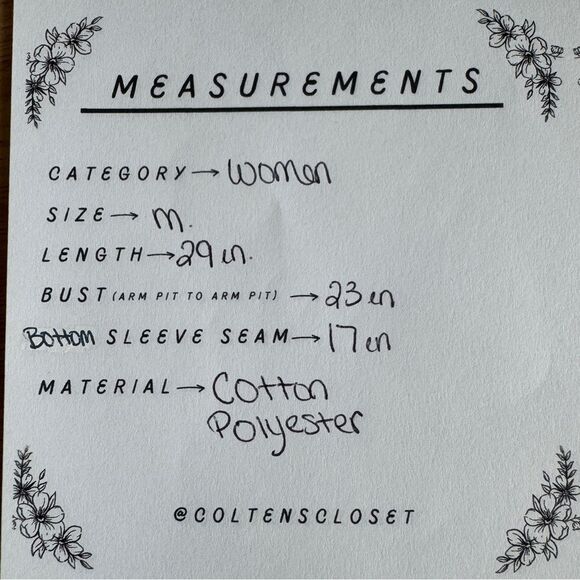 MEASUREMENTS
CATEGORY → Women
SIZE → M.
LENGTH → 29 in.
BUST (ARM PIT TO ARM PIT) → 23 in
Bottom SLEEVE SEAM → 17 in
MATERIAL → Cotton
Polyester
@COLTENSCLOSET